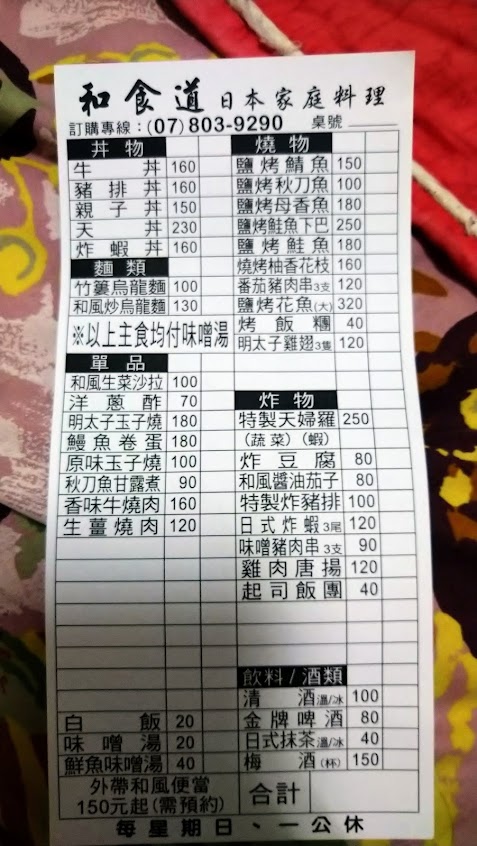 和食道 日本家庭料理
訂購專線:(07)803-9290 桌號
丼物
牛丼 160
豬排丼 160
親子丼 150
天丼 230
炸蝦丼 160
麵類
竹簍烏龍麵 100
和風炒烏龍麵 130
※以上主食均付味噌湯
單品
和風生菜沙拉 100
洋蔥酢 70
明太子玉子燒 180
鰻魚卷蛋 180
原味玉子燒 100
秋刀魚甘露煮 90
香味牛燒肉 160
生薑燒肉 120
白飯 20
味噌湯 20
鮮魚味噌湯 40
外帶和風便當
150元起(需預約)
燒物
鹽烤鯖魚 150
鹽烤秋刀魚 100
鹽烤母香魚 180
鹽烤鮭魚下巴 250
鹽烤鮭魚 180
燒烤柚香花枝 160
番茄豬肉串3支 120
鹽烤花魚(大) 320
烤飯糰 40
明太子雞翅3隻 120
炸物
特製天婦羅 250
(蔬菜)(蝦)
炸豆腐 80
和風醬油茄子 80
特製炸豬排 100
日式炸蝦3尾 120
味噌豬肉串3支 90
雞肉唐揚 120
起司飯團 40
飲料/酒類
清酒溫/冰 100
金牌啤酒 80
日式抹茶溫/冰 40
梅酒(杯) 150
合計
每星期日、一公休